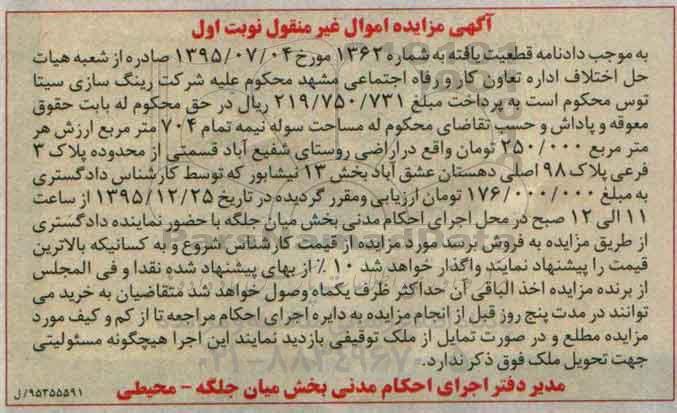 آگهی مزایده اموال غیر منقول نوبت اول
به موجب دادنامه قطعیت یافته به شماره ۱۳۶۲ مورخ ۱۳۹۵/۰۷/۰۴ صادره از شعبه هیات
حل اختلاف اداره تعاون کار و رفاه اجتماعی مشهد محکوم علیه شرکت رینگ سازی سیتا
توس محکوم است به پرداخت مبلغ ۲۱۹/۷۵۰/۷۳۱ ریال در حق محکوم له بابت حقوق
معوقه و پاداش و حسب تقاضای محکوم له مساحت سوله نیمه تمام ۷۰۴ متر مربع ارزش هر
متر مربع ۲۵۰/۰۰۰ تومان واقع در اراضی روستای شفیع آباد قسمتی از محدوده پلاک ۳
فرعی پلاک ۹۸ اصلی دهستان عشق آباد بخش ۱۳ نیشابور که توسط کارشناس دادگستری
به مبلغ ۱۷۶/۰۰۰/۰۰۰ تومان ارزیابی ومقرر گردیده در تاریخ ۱۳۹۵/۱۲/۲۵ از ساعت
۱۱ الی ۱۲ صبح در محل اجرای احکام مدنی بخش میان جلگه با حضور نماینده دادگستری
از طریق مزایده به فروش برسد مورد مزایده از قیمت کارشناس شروع و به کسانیکه بالاترین
قیمت را پیشنهاد نمایند واگذار خواهد شد ۱۰ ٪ از بهای پیشنهاد شده نقدا و فی المجلس
از برنده مزایده اخذ الباقی آن حداکثر ظرف یکماه وصول خواهد شد متقاضیان به خرید می
توانند در مدت پنج روز قبل از انجام مزایده به دایره اجرای احکام مراجعه تا از کم و کیف مورد
مزایده مطلع و در صورت تمایل از ملک توقیفی بازدید نمایند این اجرا هیچگونه مسئولیتی
جهت تحویل ملک فوق ذکر ندارد.
مدیر دفتر اجرای احکام مدنی بخش میان جلگه - محیطی
۹۵۳۵۵۵۹۱/ل